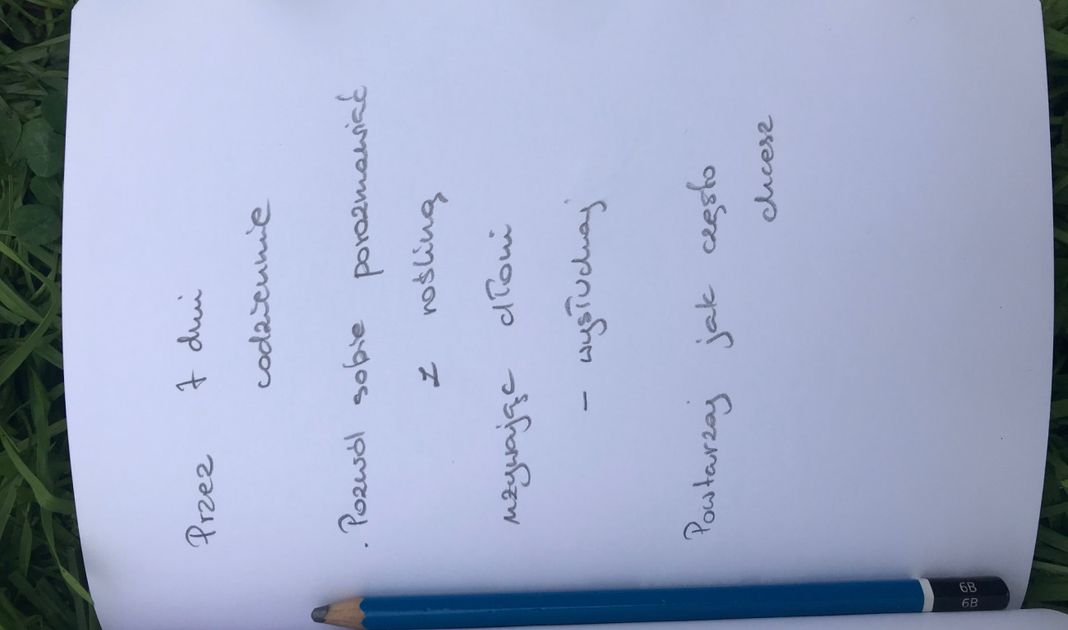 Przez 7 dni
codziennie
. Pozwól sobie porozmawiać
z rośliną
używając dłoni
– wysłuchaj
Powtarzaj jak często
chcesz
6B
6B